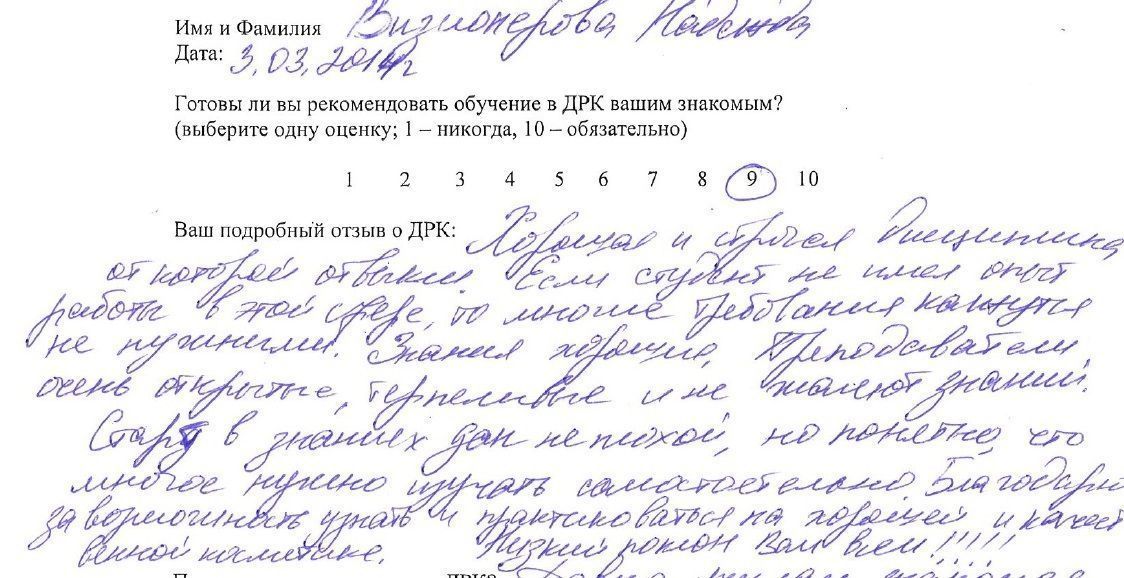 Имя и Фамилия Визионерова Надежда
Дата: 3.03.2014г
Готовы ли вы рекомендовать обучение в ДРК вашим знакомым?
(выберите одну оценку; 1 – никогда, 10 – обязательно)
1 2 3 4 5 6 7 8 9 10
Ваш подробный отзыв о ДРК: Хорошая и строгая дисциплина
от которой отвыкли. Если студент не имел опыт
работы в этой сфере, то многие требования кажутся
не нужными. Знания хорошие, Преподаватели,
очень открытые, терпеливые и не жалеют знаний.
Старт в знаниях дан не плохой, но понятно, что
многое нужно изучать самостоятельно. Благодарю
за возможность узнать и практиковаться на хорошей и качест
венной косметике. Низкий поклон Вам всем!!!!!
ДРК? Давно